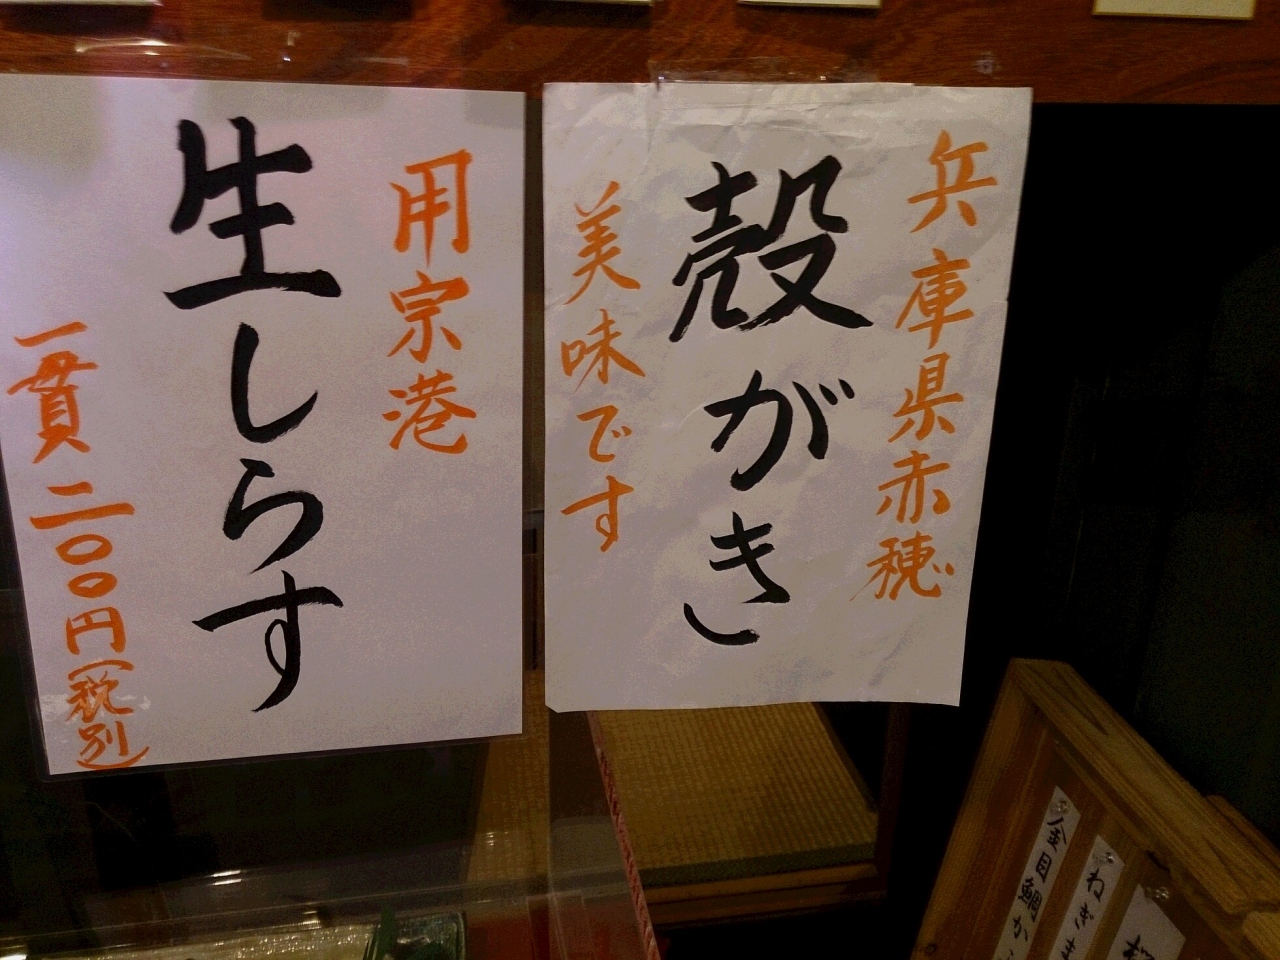 兵庫県赤穂
殻がき
美味です
用宗港
生しらす
一貫二〇〇円(税別)
ねぎま
金目鯛か